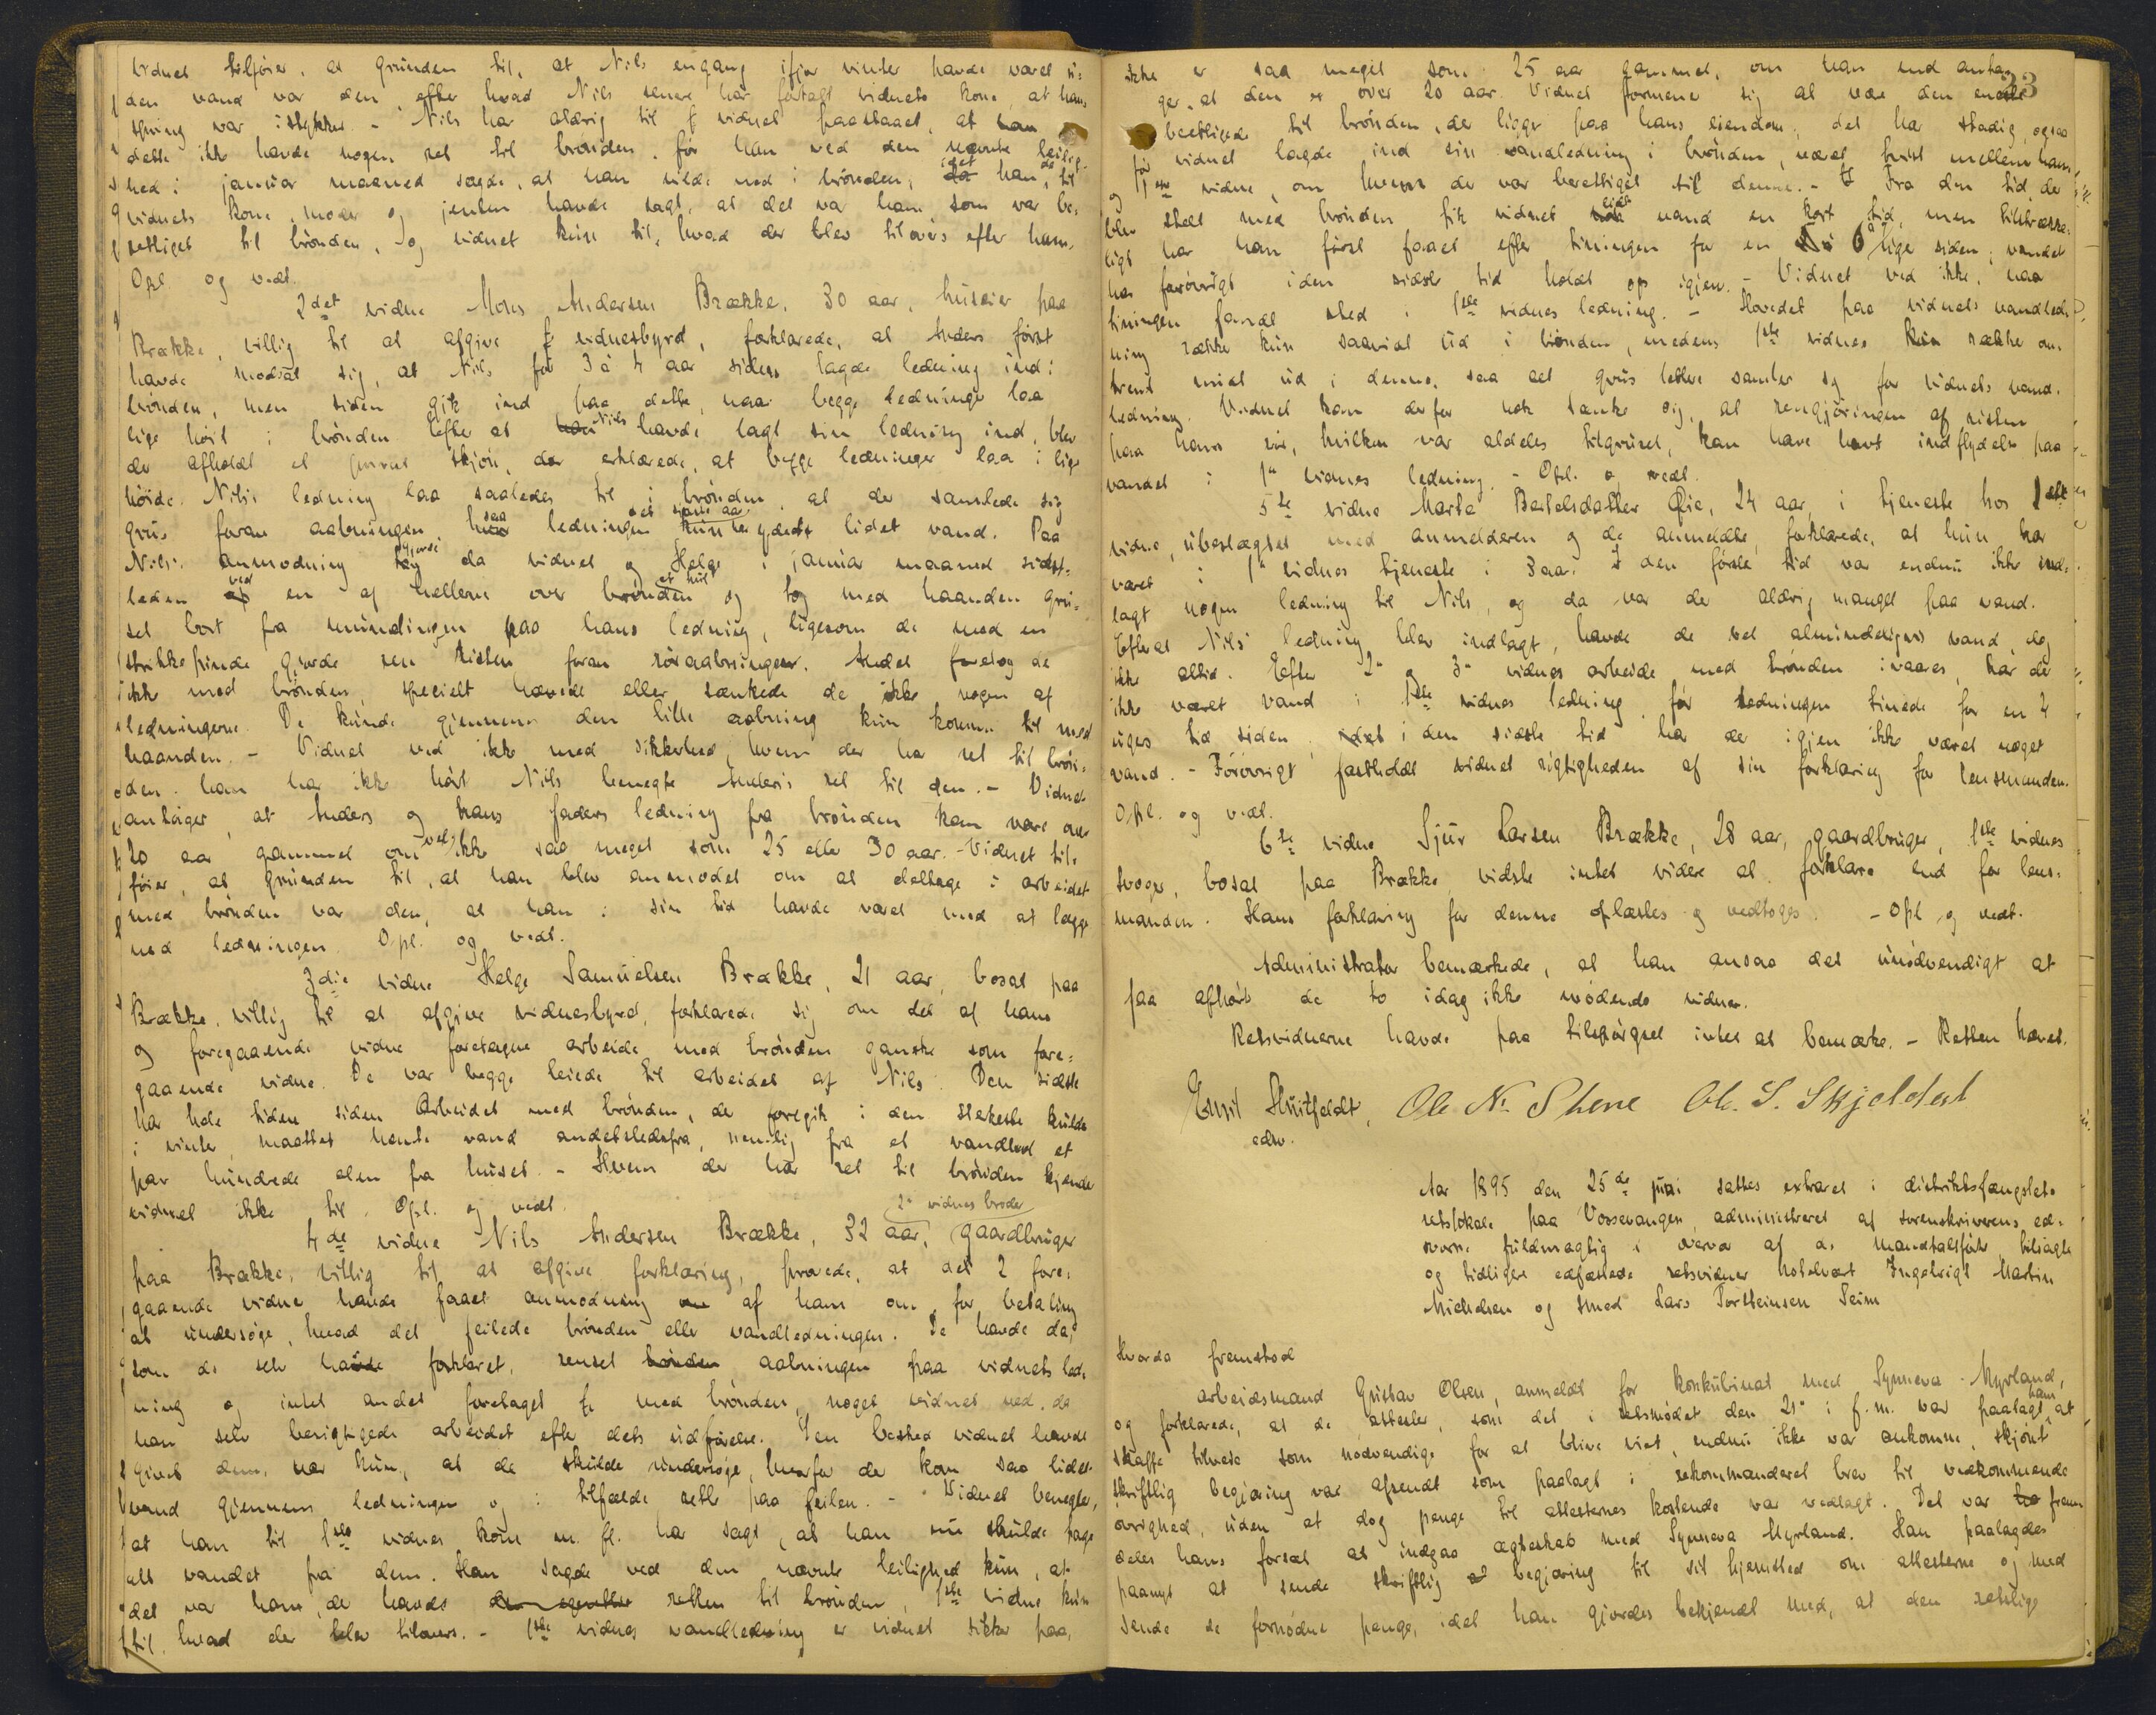 Vidnet tilføier, at grunden til, at Nils engang ifjor vinter havde været u-
den vand var den, efter hvad Nils senere har fortalt vidnets kone, at hans
spring var istykker. - Nils har aldrig til vidnet paastaaet, at han
dette ikke havde nogen ret til brønden, før han ved den nævnte leilig-
hed i januar maaned sagde, at han vilde ned i brønden, idet han da til
vidnets kone, moder og jenten havde sagt, at det var ham som var be-
rettiget til brønden, og vidnet kun til, hvad der blev tilovers efter ham.
Opl. og vedt.
2det vidne Mons Andersen Brække, 30 aar, huseier paa
Brække, villig til at afgive vidnesbyrd, forklarede, at Anders først
havde modsat sig, at Nils for 3 à 4 aar siden lagde ledning ind i
brønden, men siden gik ind paa dette, naar begge ledninger laa
lige høit i brønden. Efter at Nils havde lagt sin ledning ind, blev
der afholdt et privat skjøn, der erklærede, at begge ledninger laa i lige
høide. Nils's ledning laa saaledes til i brønden, at der samlede sig
grus foran aabningen saa ledningen det sidste aar kun ydede lidet vand. Paa
Nils's anmodning gjorde da vidnet og Helge i januar maaned sidst-
leden ved en af hellerne over brønden et hul og tog med haanden gru-
set bort fra mundingen paa hans ledning, ligesom de med en
strikkepinde gjorde ren risten foran røraabningen. Andet foretog de
ikke med brønden, specielt hævede eller sænkede de ikke nogen af
ledningerne. De kunde gjennem den lille aabning kun komme til med
haanden. - Vidnet ved ikke med sikkerhed, hvem der har ret til brøn-
den. han har ikke hørt Nils benegte Anders's ret til den. - Vidnet
antager, at Anders og hans faders ledning fra brønden kan være over
20 aar gammel om vel ikke saa meget som 25 eller 30 aar. - Vidnet til-
føier, at grunden til, at han blev anmodet om at deltage i arbeidet
med brønden var den, at han i sin tid havde været med at lægge
ned ledningen. Opl. og vedt.
3die vidne Helge Samuelsen Brække, 21 aar, bosat paa
Brække, villig til at afgive vidnesbyrd, forklarede sig om det af ham
og foregaaende vidne foretagne arbeide med brønden ganske som fore-
gaaende vidne. De var begge leiede til arbeidet af Nils. Den sidste
har hele tiden siden arbeidet med brønden, der foregik i den stærkeste kulde
i vinter, maattet hente vand andetstedsfra, nemlig fra et vandhul et
par hundrede alen fra huset. - Hvem der har ret til brønden kjender
vidnet ikke til. Opl. og vedt.
4de vidne Nils Andersen Brække, 32 aar, 2' vidnes broder gaardbruger
paa Brække, villig til at afgive forklaring, provede, at de 2 fore-
gaaende vidne havde faaet anmodning af ham om for betaling
at undersøge, hvad det feilede brønden eller vandledningen. De havde da,
som de selv havde forklaret, renset brønden aabningen paa vidnets led-
ning og intet andet foretaget med brønden, noget vidnet ved, da
han selv besigtigede arbeidet efter dets udførelse. Den besked vidnet havde
givet dem, var kun, at de skulde undersøge, hvorfor der kom saa lidet
vand gjennem ledningen og i tilfælde rette paa feilen. - Vidnet benegter,
at han til 1ste vidnes kone m. fl. har sagt, at han nu skulde tage
alt vandet fra dem. Han sagde ved den nævnte leilighed kun, at
det var ham, der havde den egentlige retten til brønden, 1ste vidne kun
til, hvad der blev tilovers. - 1ste vidnes vandledning er vidnet sikker paa,
33
ikke er saa meget som 25 aar gammel, om han end anta-
ger, at den er over 20 aar. Vidnet formener sig at være den eneste
berettigede til brønden, der ligger paa hans eiendom; det har stadig, ogsaa
før vidnet lagde ind sin vandledning i brønden, været tvist mellem ham
og 1ste vidne, om hvem der var berettiget til denne. - Fra den tid der
blev stelt med brønden fik vidnet lidt vand en kort tid, men tilstrække-
ligt har han først faaet efter tiningen for en 6 uger siden; vandet
har forøvrigt i den sidste tid holdt op igjen. - Vidnet ved ikke, naar
tiningen fandt sted i 1ste vidnes ledning. - Hovedet paa vidnets vandled-
ning rækker kun saavidt ud i brønden, medens 1ste vidnes rækker om-
trent midt ud i denne, saa at grus lettere samler sig for vidnets vand-
ledning. Vidnet kan derfor nok tænke sig, at rengjøringen af risten
paa hans rør, hvilken var aldeles tilgruset, kan have havt indflydelse paa
vandet i 1' vidnes ledning. - Opl. og vedt.
5te vidne Marta Bertelsdatter Øie, 24 aar, i tjeneste hos 1ste
vidne, ubeslægtet med anmelderen og de anmeldte, forklarede, at hun har
været i 1' vidnes tjeneste i 3 aar. I den første tid var endnu ikke ind-
lagt nogen ledning til Nils, og da var der aldrig mangel paa vand.
Efterat Nils' ledning blev indlagt, havde de vel almindeligvis vand, dog
ikke altid. Efter 2' og 3' vidnes arbeide med brønden ivaares, har der
ikke været vand i 1ste vidnes ledning, før ledningen tinede for en 4
ugers tid siden; i den sidste tid har der igjen ikke været noget
vand. - Forøvrigt fastholdt vidnet rigtigheden af sin forklaring for lensmanden.
Opl. og vedt.
6te vidne Sjur Larsen Brække, 28 aar, gaardbruger, 1ste vidnes
svoger, bosat paa Brække vidste intet videre at forklare end for lens-
manden. Hans forklaring for denne oplæstes og vedtoges. - Opl. og vedt.
Administrator bemærkede, at han ansaa det unødvendigt at
faa afhørt de to idag ikke mødende vidner.
Retsvidnerne havde paa tilspørgsel intet at bemærke. - Retten hævet.
Emil Huitfeldt, Ole N. Skene Ole. S. Skjeldal
edsv.
Aar 1895 den 25de juni sattes extraret i distriktsfængslets
retslokale paa Vossevangen, administreret af sorenskriverens ed-
svorne fuldmægtig i overvær af de mandtalsførte, tilsagte
og tidligere edfæstede retsvidner hotelvært Ingebrigt Martin
Michelsen og smed Lars Torsteinsen Seim
Hvorda fremstod
arbeidsmand Gustav Olsen, anmeldt for konkubinat med Synneva Myrland,
og forklarede, at de attester, som det i retsmødet den 21' i f. m. var paalagt ham at
skaffe tilveie som nødvendige for at blive viet, endnu ikke var ankomne, skjønt
skriftlig begjæring var afsendt som paalagt i rekommanderet brev til vedkommende
øvrighed, uden at dog penge til attesternes kostende var vedlagt. Det var frem-
deles hans forsæt at indgaa ægteskab med Synneva Myrland. Han paalagdes
paanyt at sende skriftlig begjæring til sit hjemsted om attesterne og med
sende de fornødne penge, idet han gjordes bekjendt med, at den retslige